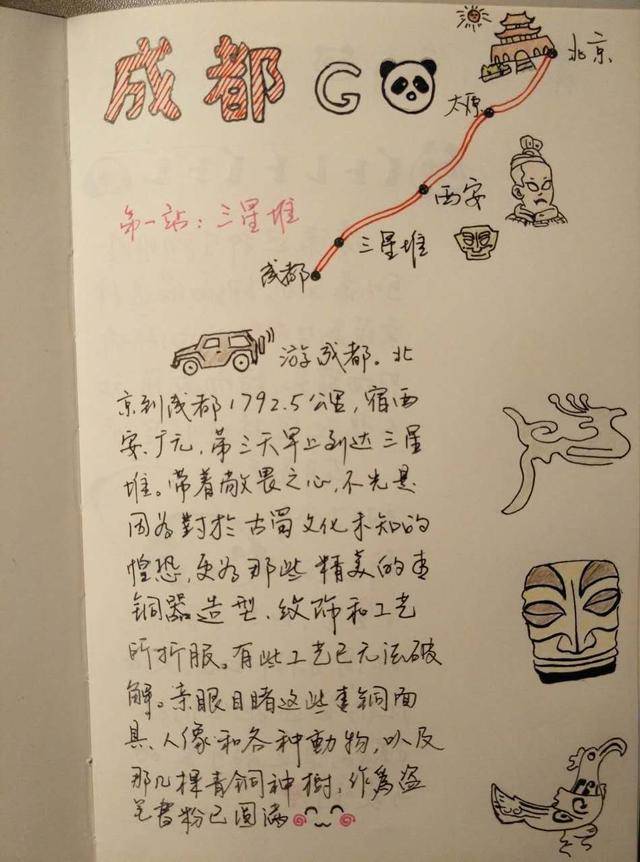 成都 GO
北京
太原
西安
三星堆
成都
第一站：三星堆
游成都。北
京到成都1792.5公里，宿西
安、广元，第三天早上到达三星
堆。带着敬畏之心，不光是
因为對於古蜀文化未知的
惶恐，更为那些精美的青
铜器造型、纹饰和工艺
所折服。有些工艺已无法破
解。亲眼目睹这些青铜面
具、人像和各种動物，以及
那几棵青铜神樹，作為盗
笔書粉已圆满